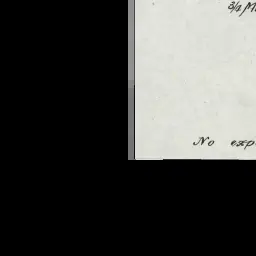 3/4 M
No exp